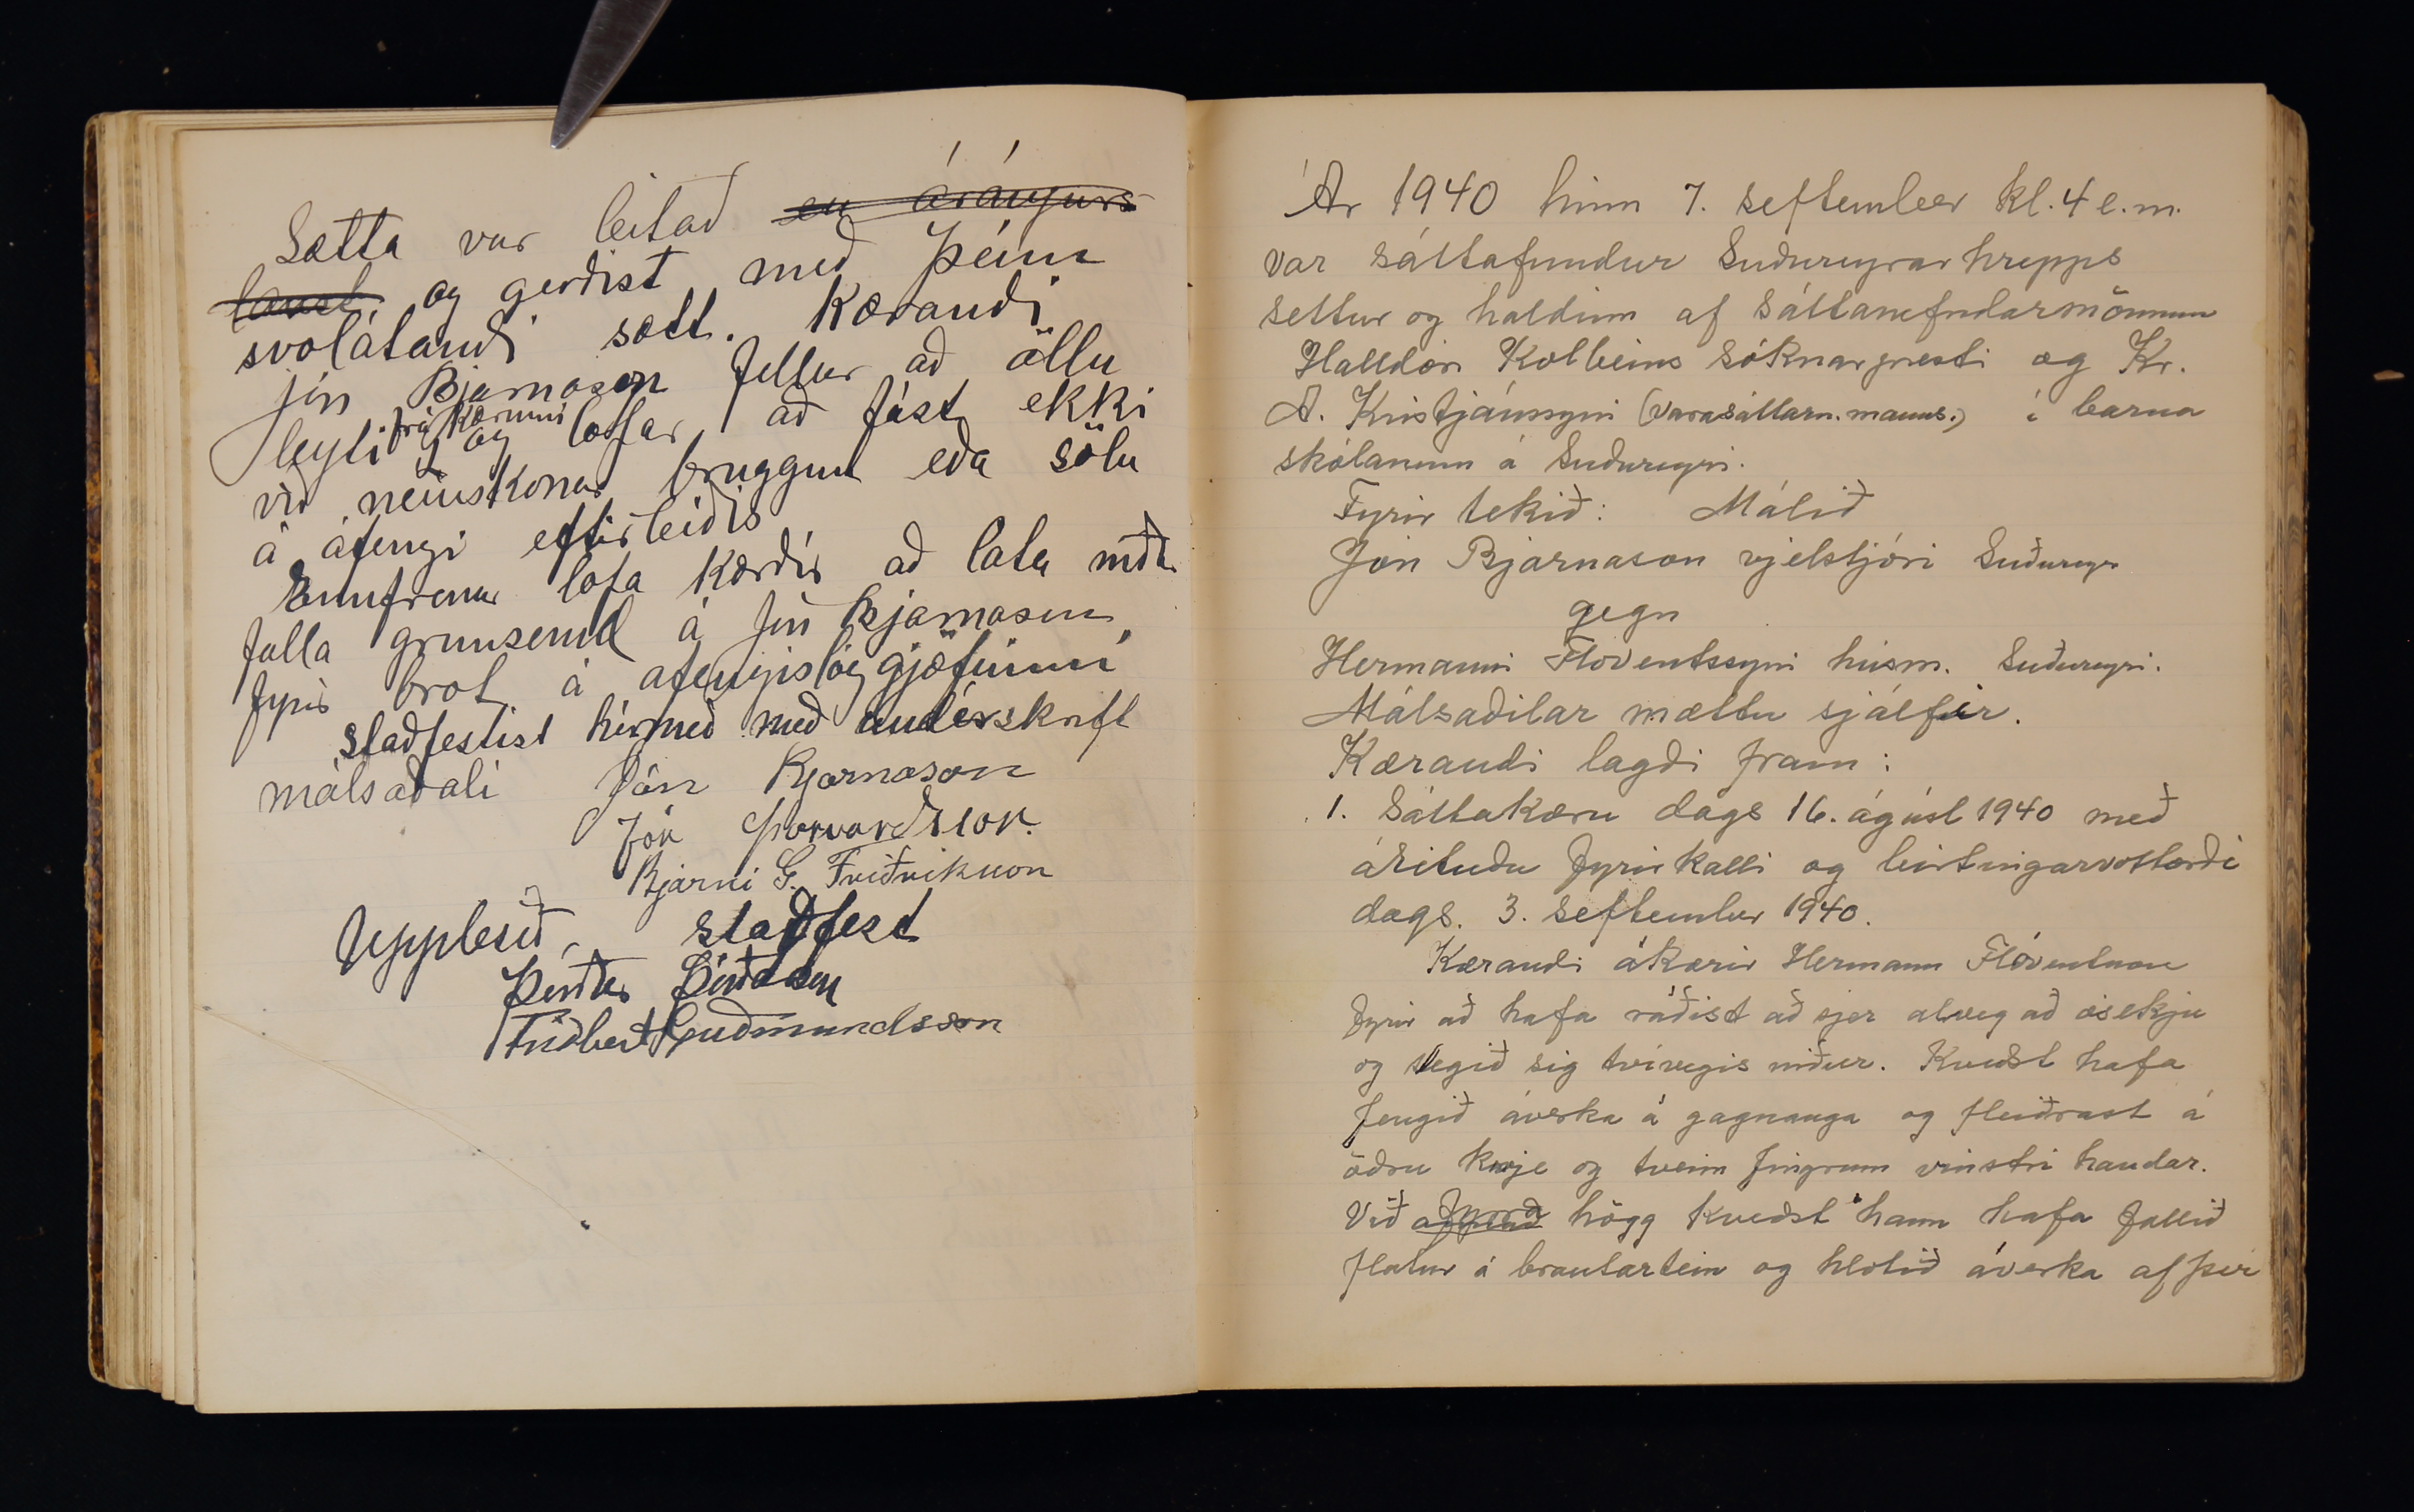 Sætta var leitað en árángurs
laust og gerðist með þeim
svolátandi sætt. Kærandi
Jón Bjarnason fellur að öllu
leyti frá kærunni og lofar að fást ekki
við neinskonar bruggun eða sölu
á áfengi eftirleiðis
Ennfremur lofa kærðir að láta niður
falla grunsemd á Jón Bjarnason
fyrir brot á áfengislöggjöfinni
staðfestist hérmeð með undirskrift
málsaðali Jón Bjarnason
Jón Þorvarðsson.
Bjarni G. Friðriksson
Upplesið, staðfest
Þórður Þórðarson
Friðbert Guðmundsson
Ár 1940 hinn 7. september kl. 4 e.m.
var sáttafundur Suðureyrarhrepps
settur og haldinn af sáttanefndarmönnum
Halldóri Kolbeins sóknarpresti og Kr.
A. Kristjánssyni (varasáttarn.manns.) í barna
skólanum á Suðureyri.
Fyrir tekið: Málið
Jón Bjarnason vjelstjóri Suðureyri
gegn
Hermanni Flóventssyni húsm. Suðureyri.
Málsaðilar mættu sjálfir.
Kærandi lagði fram:
1. Sáttakæru dags 16. ágúst 1940 með
árituðu fyrirkalli og birtingarvottorði
dags. 3. september 1940.
Kærandi ákærir Hermann Flóventsson
fyrir að hafa ráðist að sjer alveg að ósekju
og slegið sig tvívegis niður. Kveðst hafa
fengið áverka á gagnauga og fleiðrast á
öðru knje og tveim fingrum vinstri handar.
Við högg kveðst hann hafa fallið
flatur á brautartein og hlotið áverka af því